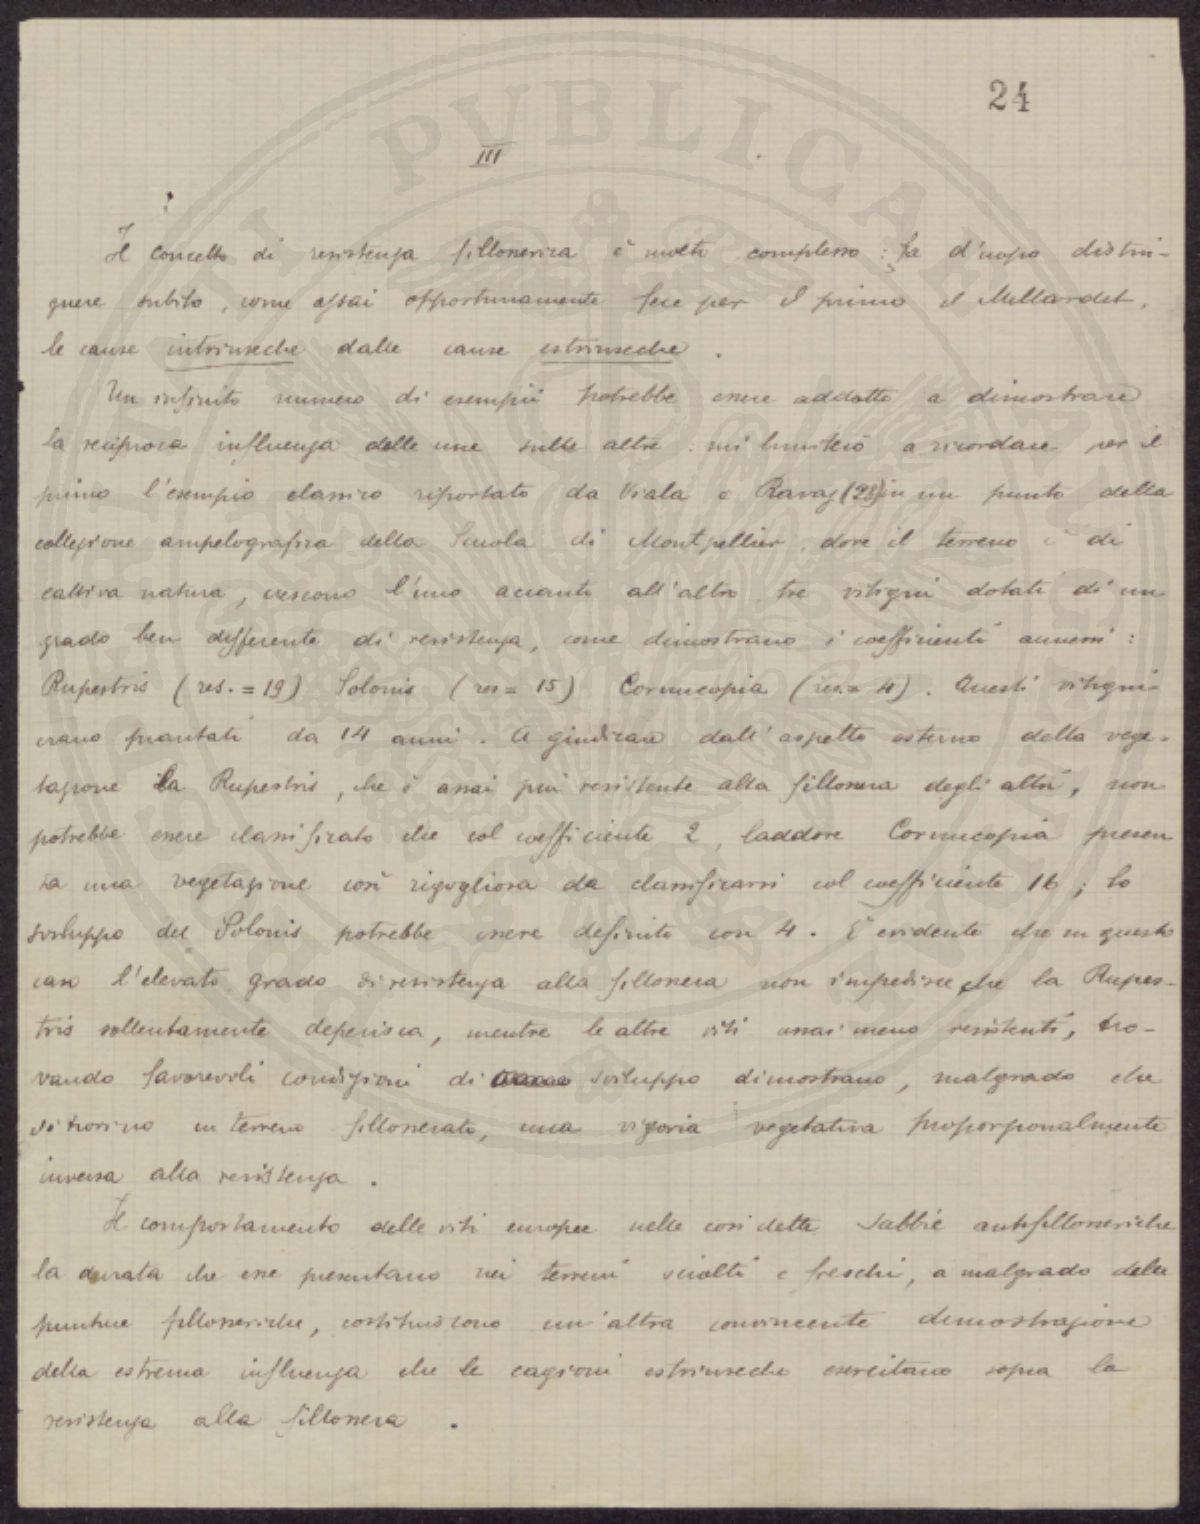 24
III
Il concetto di resistenza fillosserica è molto complesso: fa d'uopo distin-
guere subito, come assai opportunamente fece per il primo il Millardet,
le cause intrinseche dalle cause estrinseche.
Un infinito numero di esempii potrebbe essere addotto a dimostrare
la reciproca influenza delle une sulle altre: mi limiterò a ricordare per il
primo l'esempio classico riportato da Viala e Ravaz (28) in un punto della
collezione ampelografica della Scuola di Montpellier, dove il terreno è di
cattiva natura, crescono l'uno accanto all'altro tre vitigni dotati di un
grado ben differente di resistenza, come dimostrano i coefficienti annessi:
Rupestris (res. = 19) Solonis (res = 15) Cornucopia (res. = 4). Questi vitigni
erano piantati da 14 anni. A giudicare dall'aspetto esterno della vege-
tazione la Rupestris, che è assai più resistente alla fillossera degli altri, non
potrebbe essere classificato che col coefficiente 2, laddove Cornucopia presen
ta una vegetazione così rigogliosa da classificarsi col coefficiente 16; lo
sviluppo del Solonis potrebbe essere definito con 4. È evidente che in questo
caso l'elevato grado di resistenza alla fillossera non impedisce che la Rupes-
tris sollentamente deperisca, mentre le altre viti assai meno resistenti, tro-
vando favorevoli condizioni di sviluppo dimostrano, malgrado che
si trovino in terreno fillosserato, una vigoria vegetativa proporzionalmente
inversa alla resistenza.
Il comportamento delle viti europee nelle così dette sabbie antifillosseriche
la durata che esse presentano nei terreni sciolti e freschi, a malgrado delle
punture fillosseriche, costituiscono un'altra convincente dimostrazione
della estrema influenza che le cagioni estrinseche esercitano sopra la
resistenza alla fillossera.
PUBLICAE